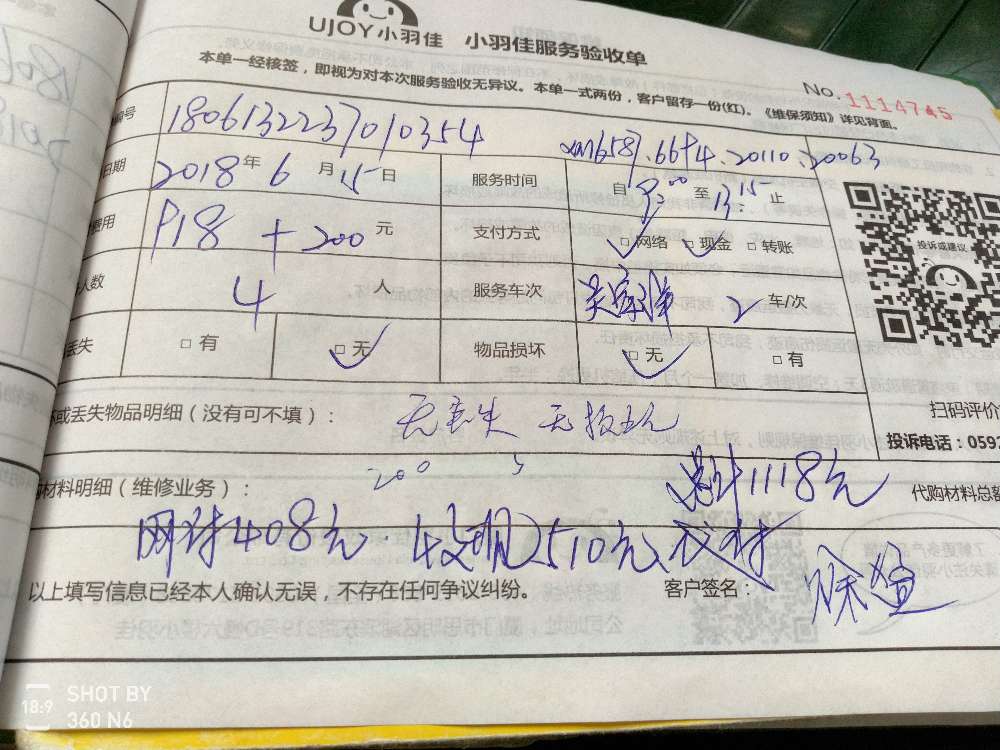 UJOY小羽佳 小羽佳服务验收单
No. 1114745
本单一经核签，即视为对本次服务验收无异议。本单一式两份，客户留存一份(红)。《维保须知》详见背面。
编号 180613223701035​4
6694.20110.20063
日期 2018年6月15日 服务时间 自 8:00 至 13:15 止
费用 918+200 元 支付方式 □网络 □现金 □转账
人数 4 人 服务车次 2 车/次
丢失 □有 □无 物品损坏 □无 □有
投诉或建议
扫码评价
坏或丢失物品明细（没有可不填）： 无丢失 无损坏
投诉电话：0592
200
购材料明细（维修业务）： 总计1118元 代购材料总额
网付408元.
以上填写信息已经本人确认无误，不存在任何争议纠纷。 客户签名：
18:9 SHOT BY
360 N6